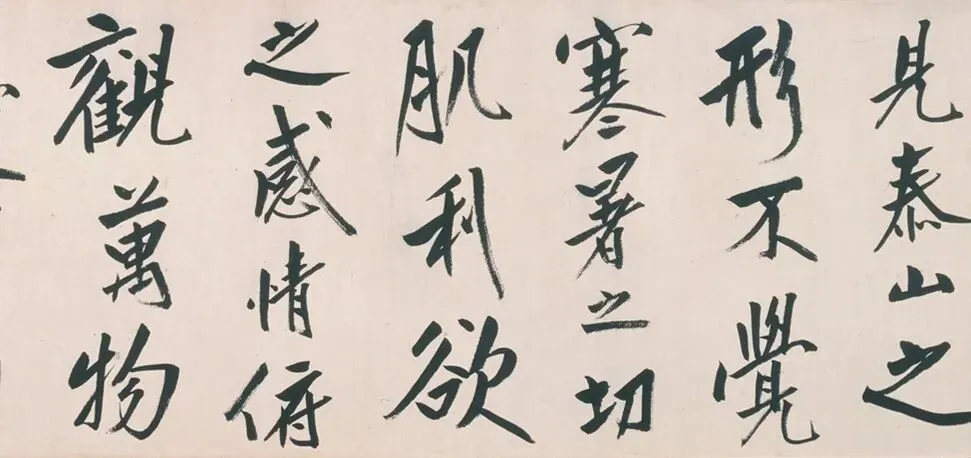 見泰山之
形不覺
寒暑之切
肌利欲
之感情俯
觀萬物